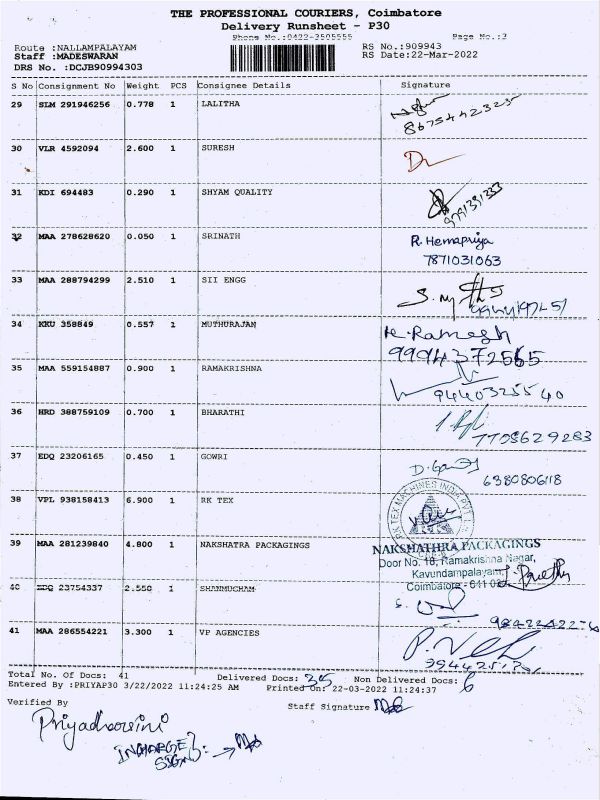 THE PROFESSIONAL COURIERS, Coimbatore
Delivery Runsheet - P30
Phone No.:0422-3505555 Page No.:3
Route :NALLAMPALAYAM RS No.:909943
Staff :MADESWARAN RS Date:22-Mar-2022
DRS No. :DCJB90994303
S No Consignment No Weight PCS Consignee Details Signature
29 SLM 291946256 0.778 1 LALITHA
8675442325
30 VLR 4592094 2.600 1 SURESH
31 KDI 694483 0.290 1 SHYAM QUALITY
9791391333
32 MAA 278628620 0.050 1 SRINATH R. Hemapriya
7871031063
33 MAA 288794299 2.510 1 SII ENGG
34 KKU 358849 0.557 1 MUTHURAJAN K. Ramesh
9994372565
35 MAA 559154887 0.900 1 RAMAKRISHNA
9440325540
36 HRD 388759109 0.700 1 BHARATHI
7708629283
37 EDQ 23206165 0.450 1 GOWRI
6380806118
38 VPL 938158413 6.900 1 RK TEX
39 MAA 281239840 4.800 1 NAKSHATRA PACKAGINGS NAKSHATHRA PACKAGINGS
Door No. 18, Ramakrishna Nagar,
Kavundampalayam,
Coimbatore - 641 030
40 EDQ 23754337 2.550 1 SHANMUCHAM
41 MAA 286554221 3.300 1 VP AGENCIES
Total No. Of Docs: 41 Delivered Docs: 35 Non Delivered Docs: 6
Entered By :PRIYAP30 3/22/2022 11:24:25 AM Printed On: 22-03-2022 11:24:37
Verified By Staff Signature
Priyadharsini
INCHARGE
SIGN